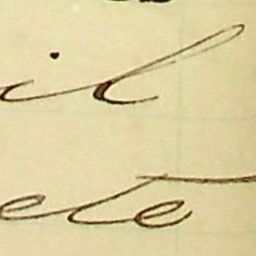 il
ete